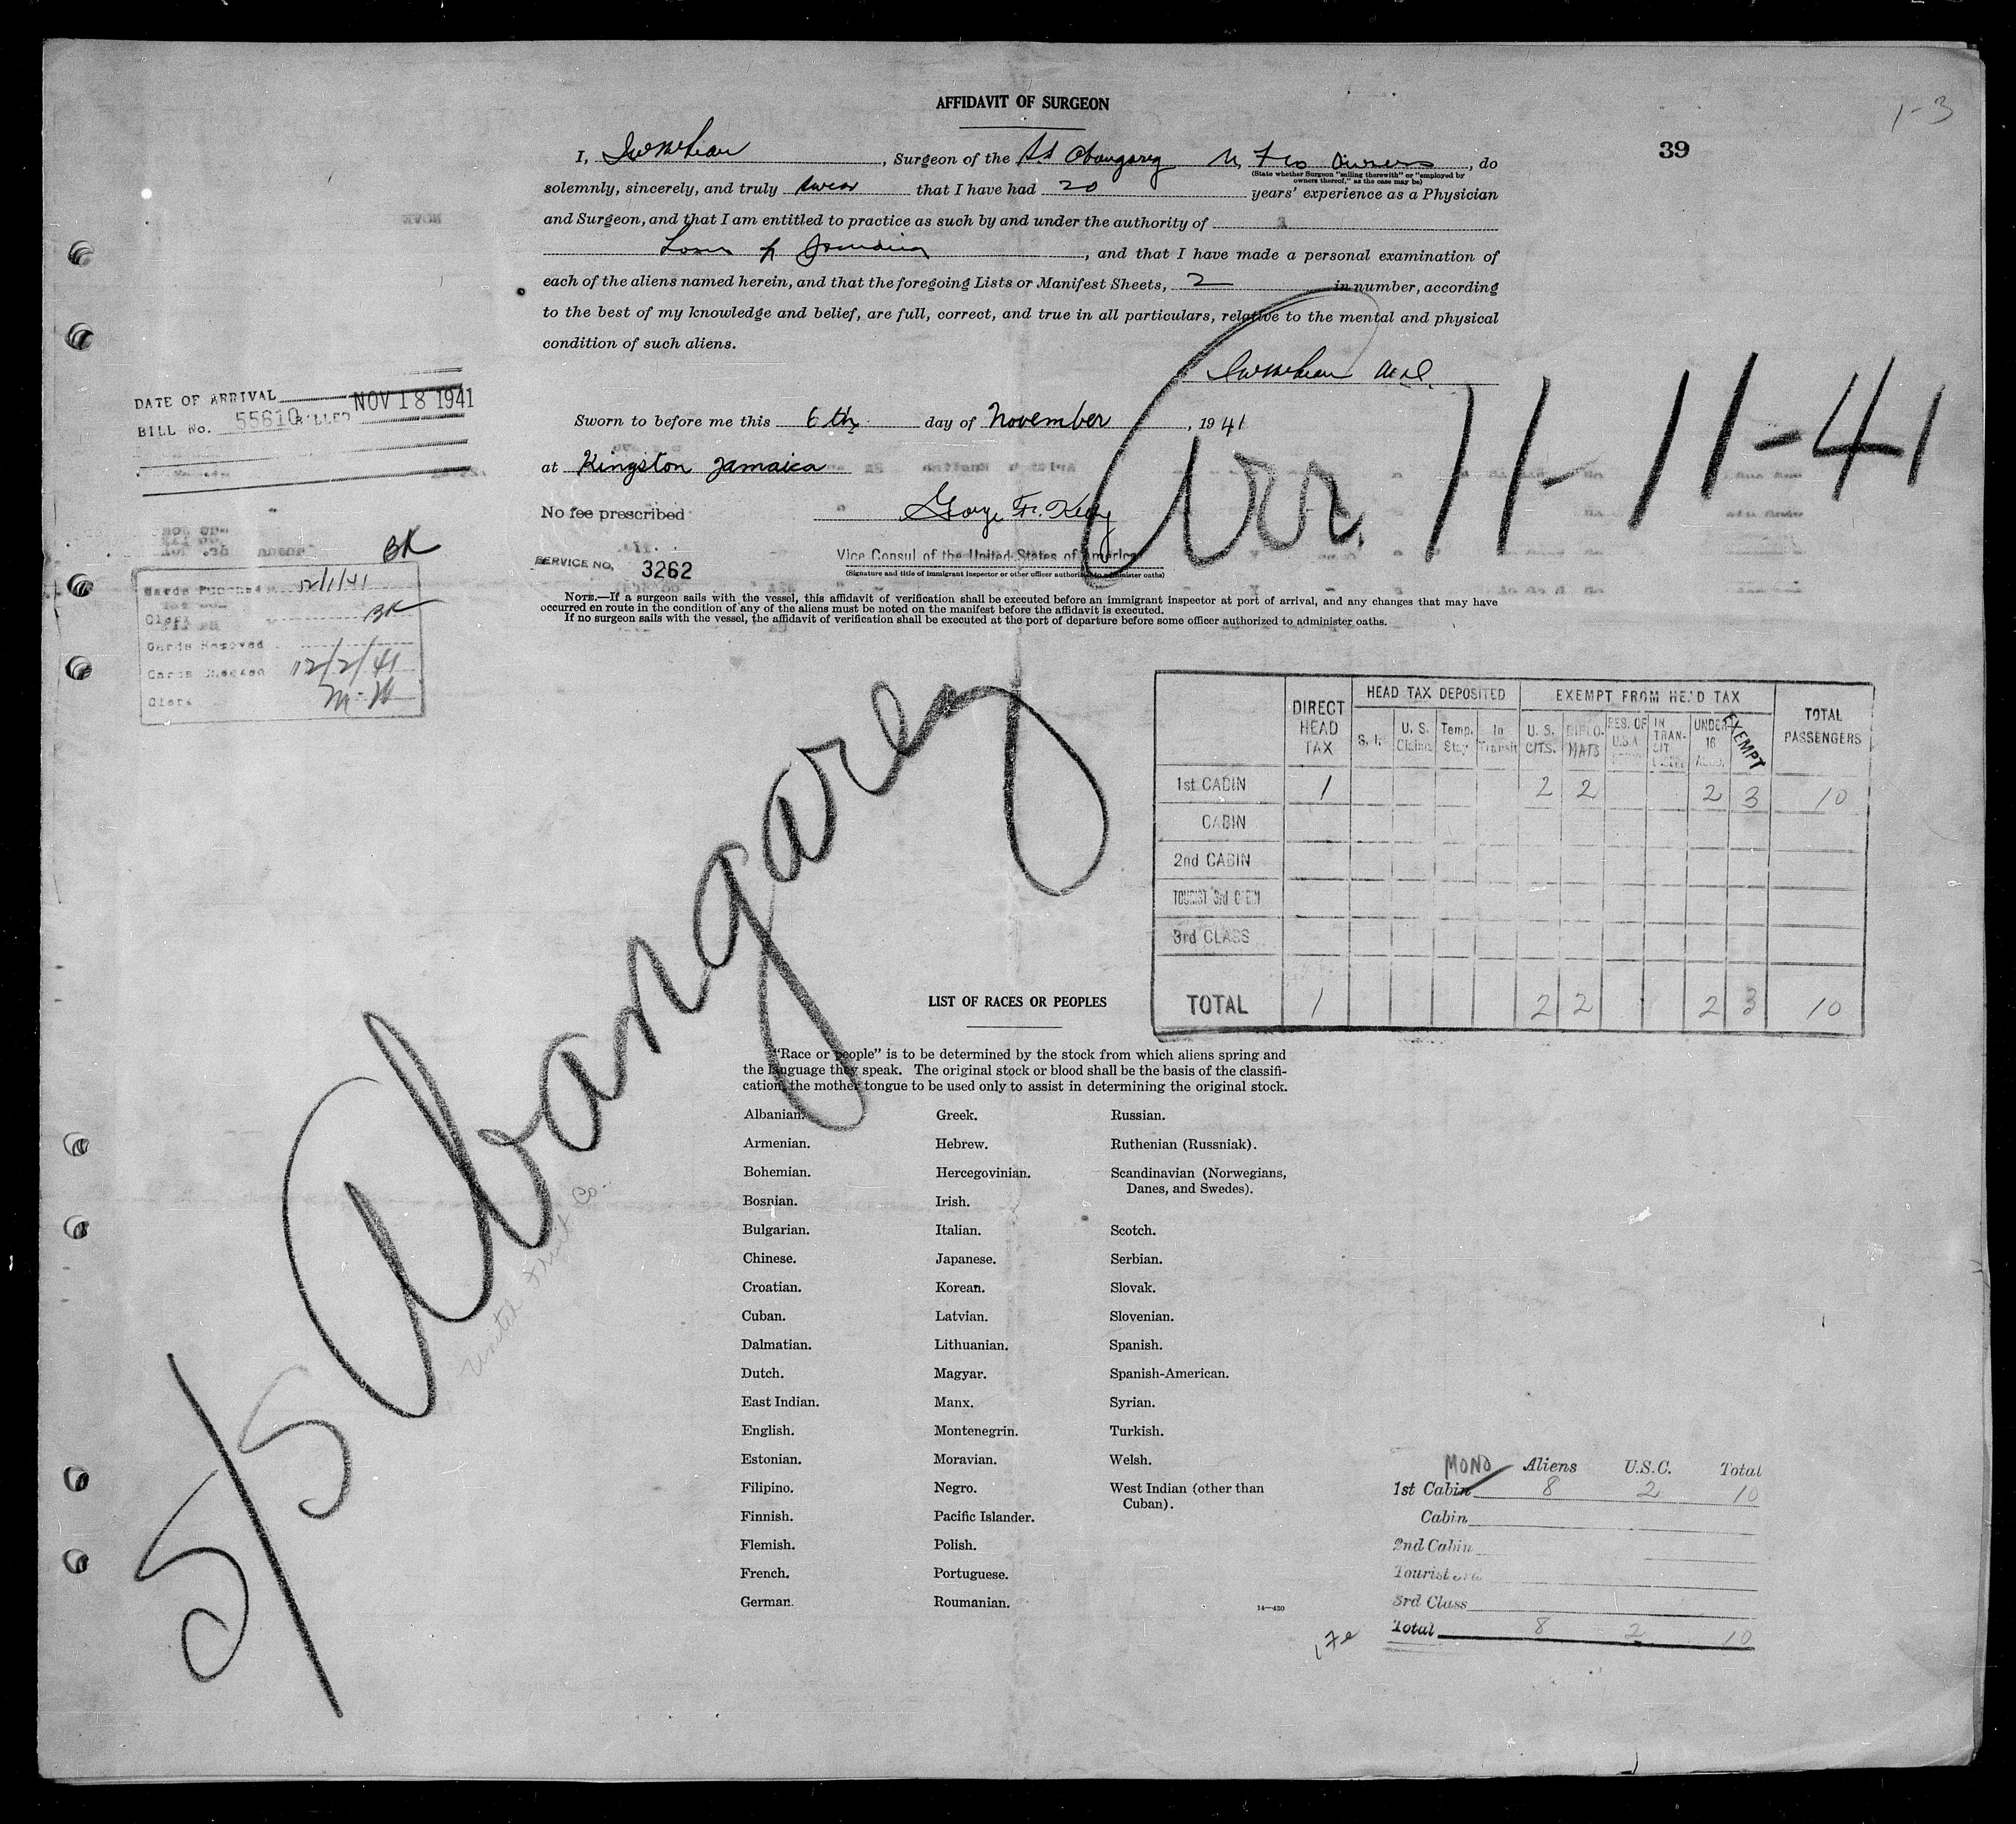 1-3
39
AFFIDAVIT OF SURGEON
I, , Surgeon of the S.S. Abangarez owners, do
(State whether Surgeon "sailing therewith" or "employed by
owners thereof," as the case may be)
solemnly, sincerely, and truly swear that I have had 20 years' experience as a Physician
and Surgeon, and that I am entitled to practice as such by and under the authority of
, and that I have made a personal examination of
each of the aliens named herein, and that the foregoing Lists or Manifest Sheets, 2 in number, according
to the best of my knowledge and belief, are full, correct, and true in all particulars, relative to the mental and physical
condition of such aliens.
DATE OF ARRIVAL NOV 18 1941
BILL No. 55610 BILLED
Sworn to before me this 6th day of November, 1941
at Kingston Jamaica
Arr. 11-11-41
No fee prescribed
George F.
Vice Consul of the United States of America
(Signature and title of immigrant inspector or other officer authorized to administer oaths)
SERVICE NO. 3262
NOTE.—If a surgeon sails with the vessel, this affidavit of verification shall be executed before an immigrant inspector at port of arrival, and any changes that may have
occurred en route in the condition of any of the aliens must be noted on the manifest before the affidavit is executed.
If no surgeon sails with the vessel, the affidavit of verification shall be executed at the port of departure before some officer authorized to administer oaths.
BK
Cards Punched 12/1/41
Clerk BK
Cards Removed
Cards Checked 12/2/41
Clerk M-W
S/S Abangarez
United Fruit Co.
DIRECT HEAD TAX
HEAD TAX DEPOSITED
EXEMPT FROM HEAD TAX
TOTAL PASSENGERS
S. I. U. S. Claims Temp. Stay In Transit U. S. CITS. DIPLO-MATS RES. OF U.S.A. IN TRAN-SIT UNDER 16 EXEMPT
1st CABIN 1 2 2 2 3 10
CABIN
2nd CABIN
TOURIST 3rd CABIN
3rd CLASS
TOTAL 1 2 2 2 3 10
LIST OF RACES OR PEOPLES
"Race or people" is to be determined by the stock from which aliens spring and
the language they speak. The original stock or blood shall be the basis of the classifi-
cation, the mother tongue to be used only to assist in determining the original stock.
Albanian.
Armenian.
Bohemian.
Bosnian.
Bulgarian.
Chinese.
Croatian.
Cuban.
Dalmatian.
Dutch.
East Indian.
English.
Estonian.
Filipino.
Finnish.
Flemish.
French.
German.
Greek.
Hebrew.
Hercegovinian.
Irish.
Italian.
Japanese.
Korean.
Latvian.
Lithuanian.
Magyar.
Manx.
Montenegrin.
Moravian.
Negro.
Pacific Islander.
Polish.
Portuguese.
Roumanian.
Russian.
Ruthenian (Russniak).
Scandinavian (Norwegians,
Danes, and Swedes).
Scotch.
Serbian.
Slovak.
Slovenian.
Spanish.
Spanish-American.
Syrian.
Turkish.
Welsh.
West Indian (other than
Cuban).
14—430
MONO Aliens U.S.C. Total
1st Cabin 8 2 10
Cabin
2nd Cabin
Tourist 3rd
3rd Class
Total 8 2 10